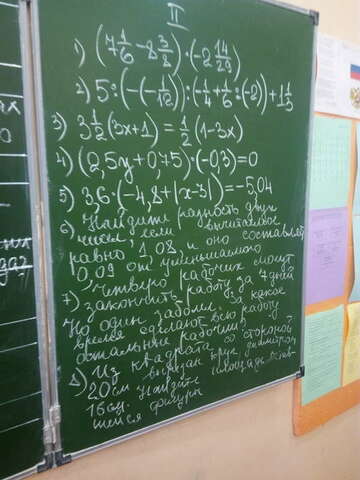 II
1) (7 1/6 - 8 3/8) · (-2 14/29)
2) 5 : (-(-1/12)) : (-1/4 + 1/6 : (-2)) + 1 1/3
3) 3 1/2 (3x+1) = 1/2 (1-3x)
4) (2,5y + 0,75) : (-0,3) = 0
5) 3,6 · (-4,8 + |x-3|) = -5,04
6) Найдите разность двух
чисел, если вычитаемое
равно 1,08, и оно составляет
0,09 от уменьшаемого
7) Четверо рабочих могут
закончить работу за 7 дней
Но один заболел. За какое
время сделают всю работу
остальные рабочие
8) Из квадрата со стороной
20 см вырезан круг диаметром
16 см. Найдите площадь остав-
шейся фигуры